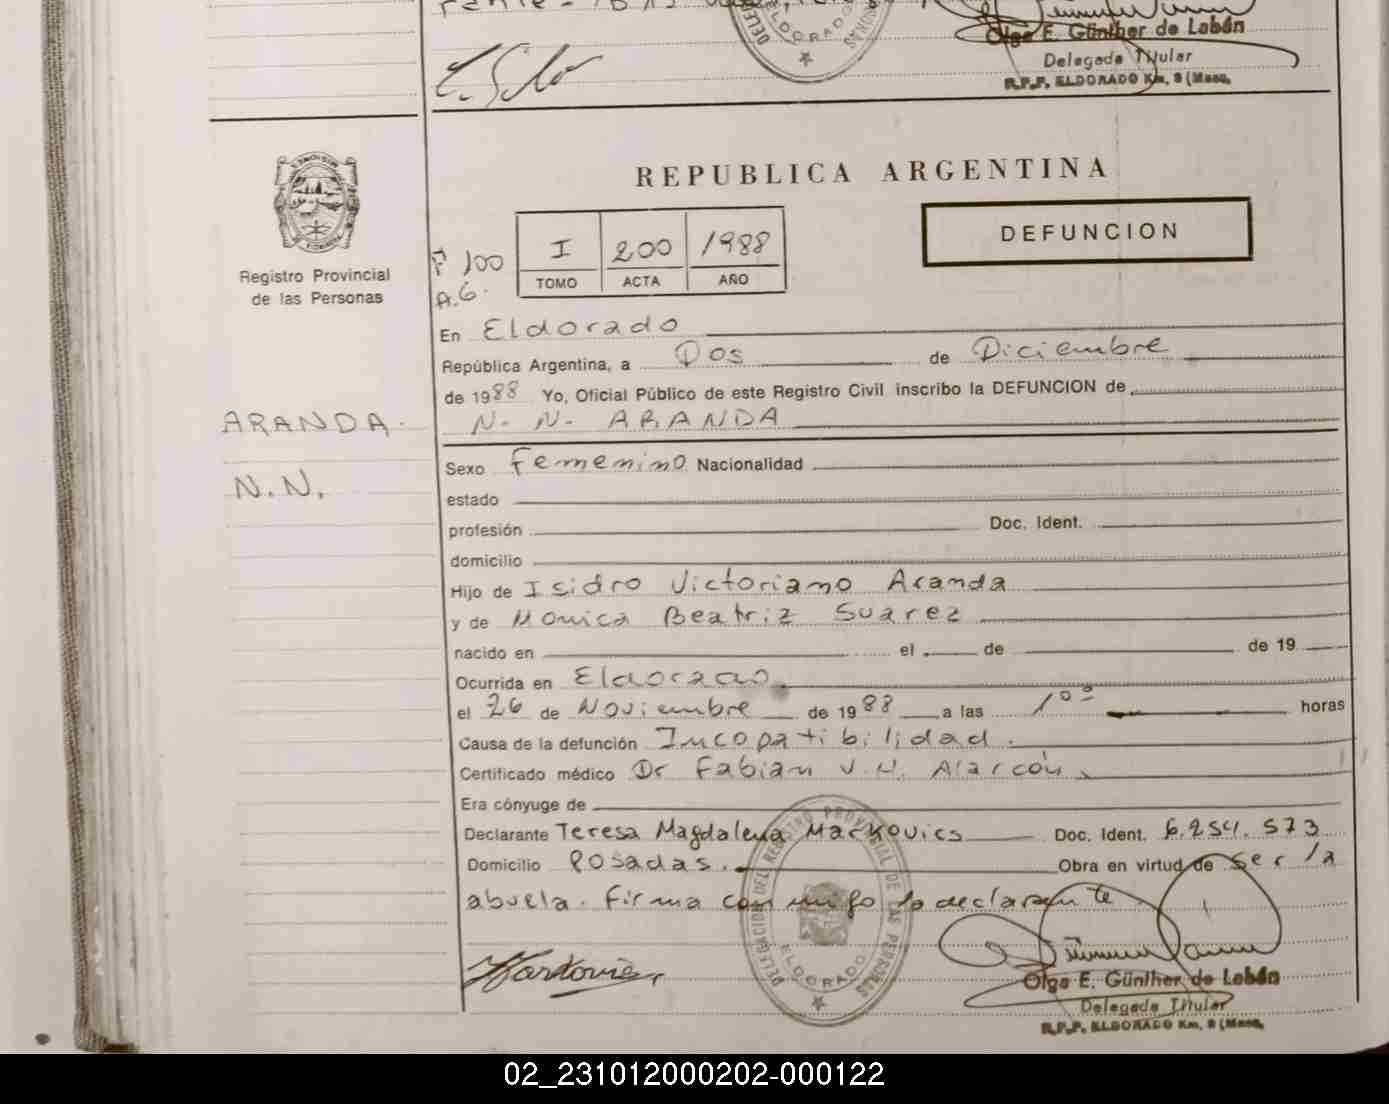 Olga E. Günther de Labán
Delegada Titular
R.P.P. ELDORADO Km. 9 (Mnes.
REPUBLICA ARGENTINA
DEFUNCION
Registro Provincial
de las Personas
Fº 100
A.G.
I 200 1988
TOMO ACTA AÑO
En Eldorado
República Argentina, a Dos de Diciembre
de 1988 Yo, Oficial Público de este Registro Civil inscribo la DEFUNCION de
ARANDA.
N. N. ARANDA
N.N.
Sexo Femenino Nacionalidad
estado
profesión Doc. Ident.
domicilio
Hijo de Isidro Victoriano Aranda
y de Monica Beatriz Suarez
nacido en el de de 19
Ocurrida en Eldorado
el 26 de Noviembre de 1988 a las 1⁰⁰ horas
Causa de la defunción Incopatibilidad.
Certificado médico Dr Fabian V.N. Alarcón
Era cónyuge de
Declarante Teresa Magdalena Markovics Doc. Ident. 6.254.573
Domicilio Posadas. Obra en virtud de ser la
abuela. Firma conmigo la declarante
DELEGACION DEL REGISTRO PROVINCIAL DE LAS PERSONAS
ELDORADO
Olga E. Günther de Labán
Delegada Titular
R.P.P. ELDORADO Km. 9 (Mnes.
02_231012000202-000122